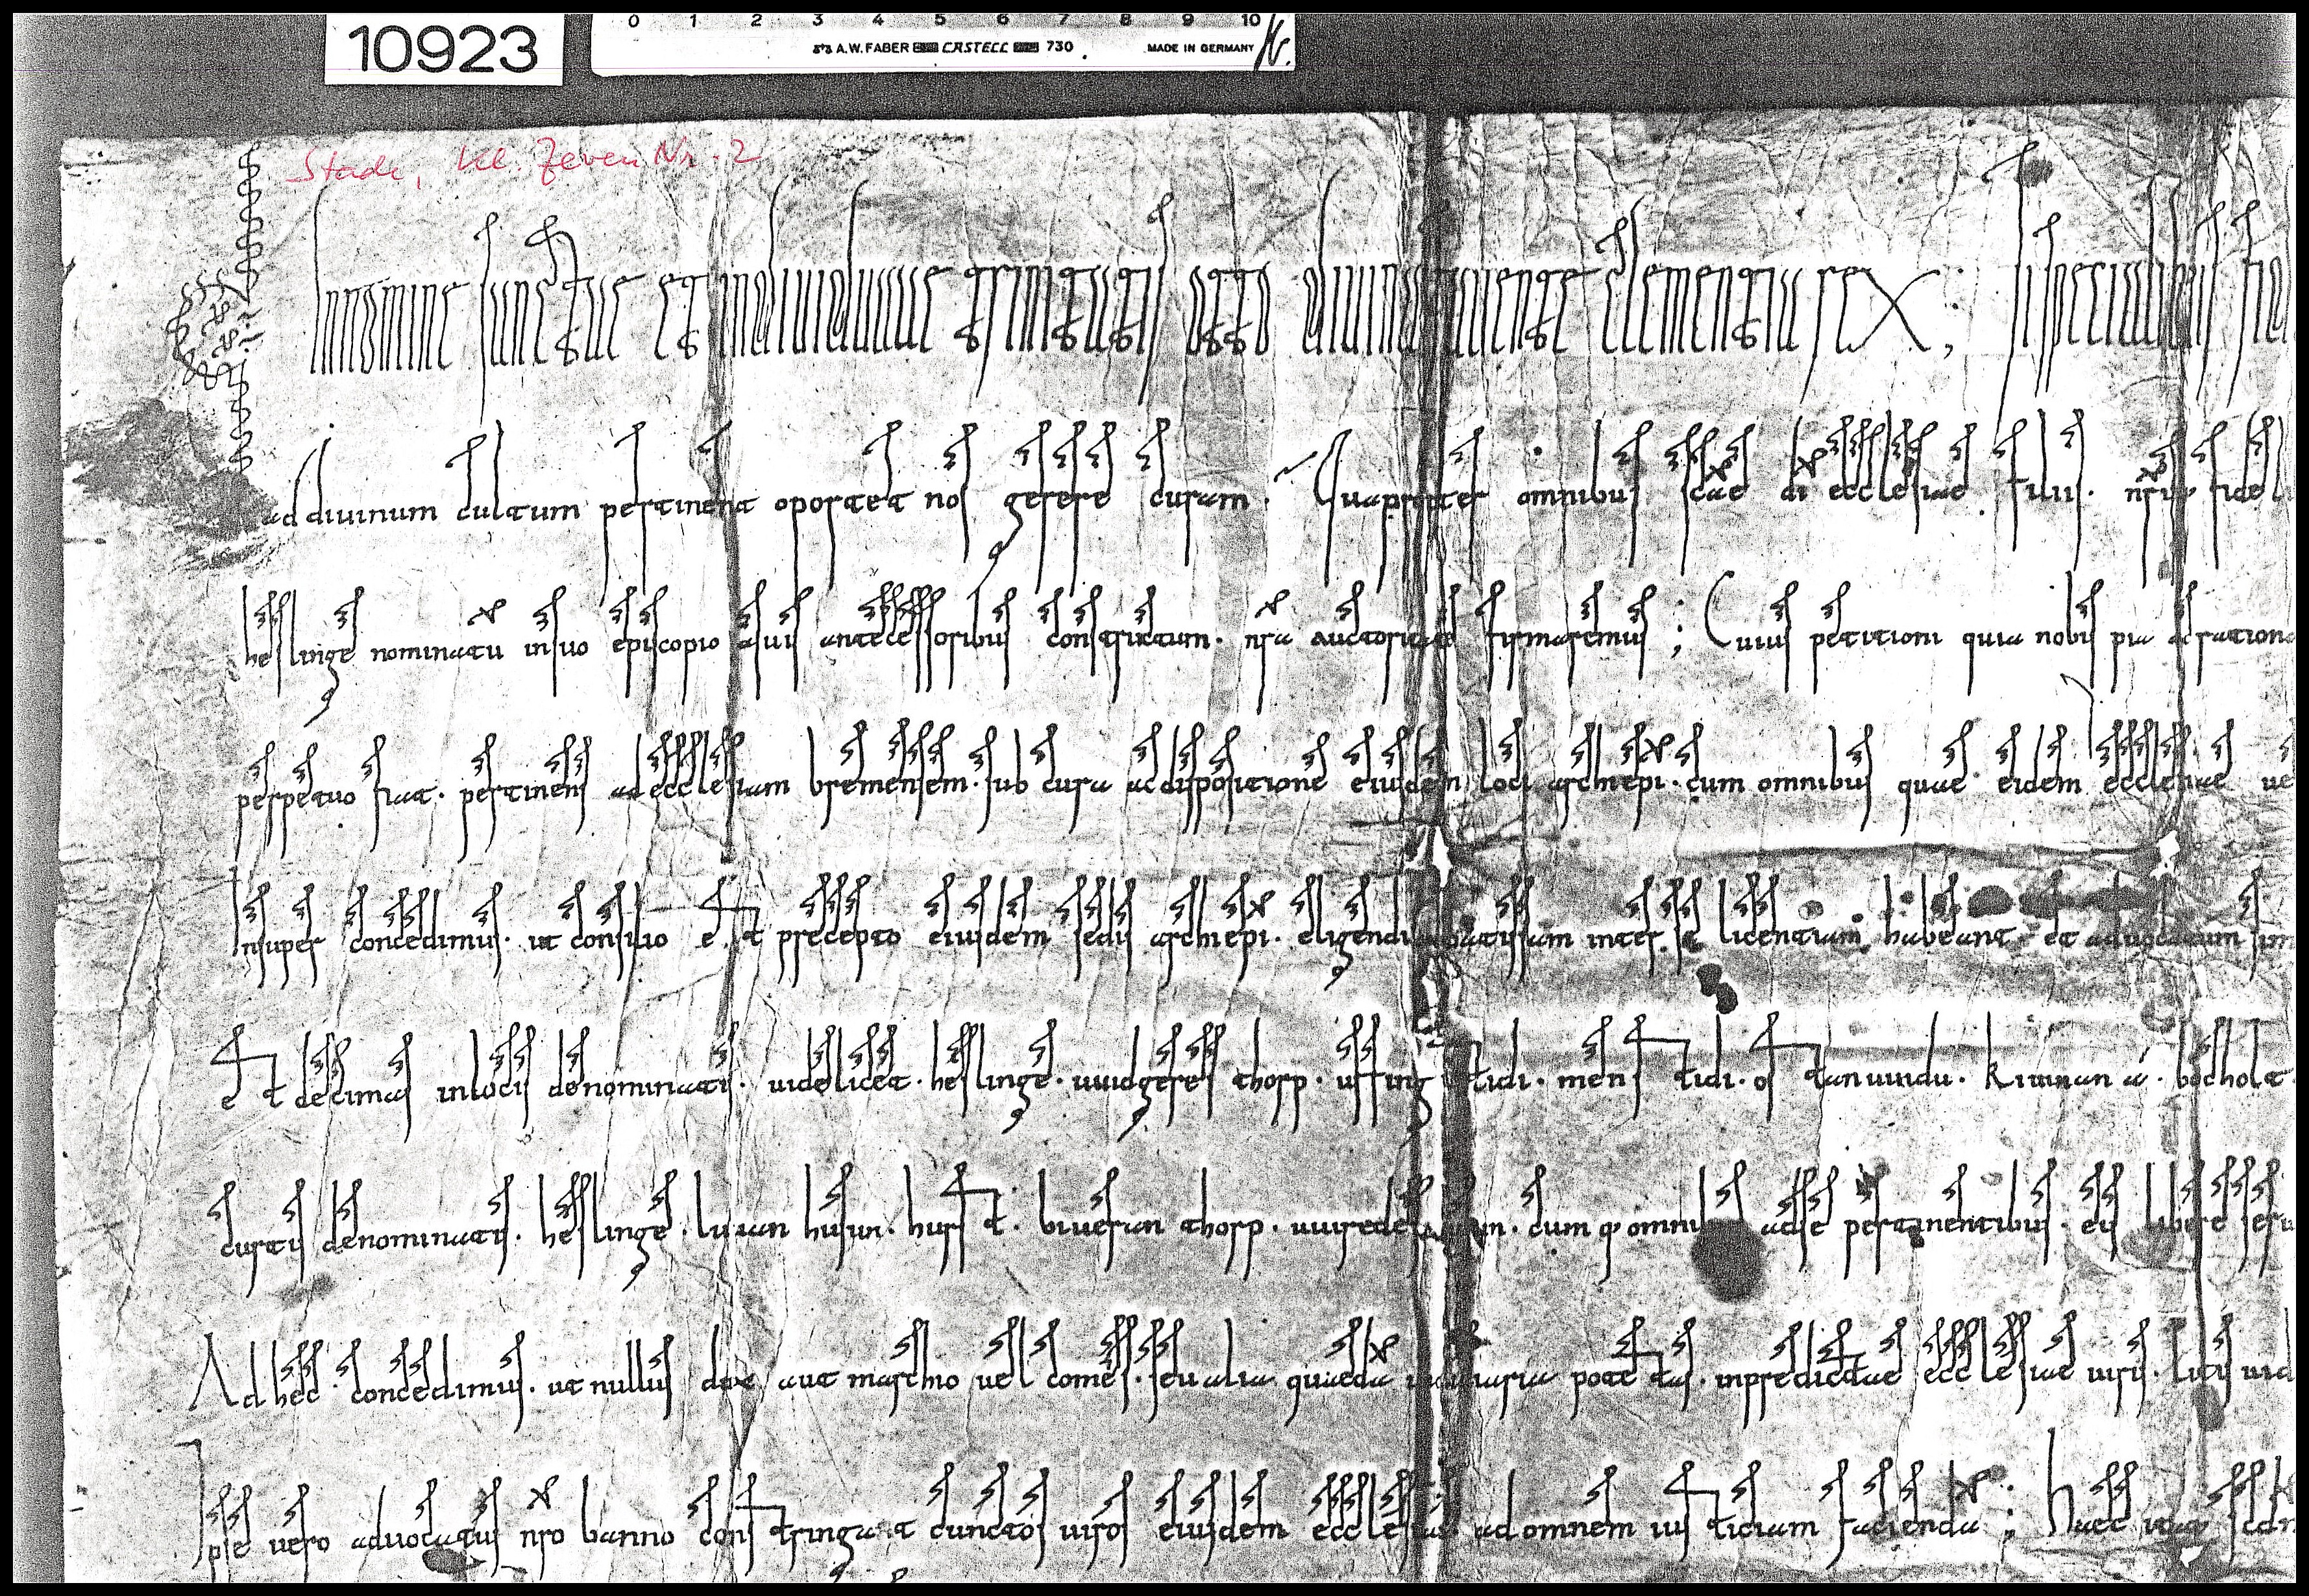 0 1 2 3 4 5 6 7 8 9 10
10923
A.W. FABER CASTELL 730 MADE IN GERMANY
Stade, Kl. Zeven Nr. 2
In nomine sanctae et individuae trinitatis otto divina clementia rex; si specialibus
ad diuinum cultum pertinent oportet nos gerere curam. Quapropter omnibus scae di ecclesiae filiis. nris
heslinge nominatu in suo episcopio a suis antecessoribus constructum. nra auctoritate firmaremus; Cuius petitioni quia nobis pia
perpetuo fiat. pertinens ad ecclesiam bremensem. sub cura ac dispositione eiusdem loci archiepi. cum omnibus quae eidem ecclesiae
Insuper concedimus. ut consilio et precepto eiusdem sedis archiepi. eligendi inter se licentiam habeant. et aduocatum
Et decimas in locis denominatis. uidelicet. heslinge. uuidgeres thorp. uffing stidi. menstidi. ostanuuidu. kiuuinana. bocholt.
curtis denominatis. heslinge. liuian husun. husft. biuerian thorp. cumq omnibus ad se pertinentibus. eis libere
Ad hec concedimus. ut nullus dux aut marchio uel comes. seu alia quaeda iudiciaria potestas. in predictae ecclesiae uiris. litis
Ipse uero aduocatus nro banno constringat cunctos uiros eiusdem ecclesiae ad omnem iusticiam facienda; Haec